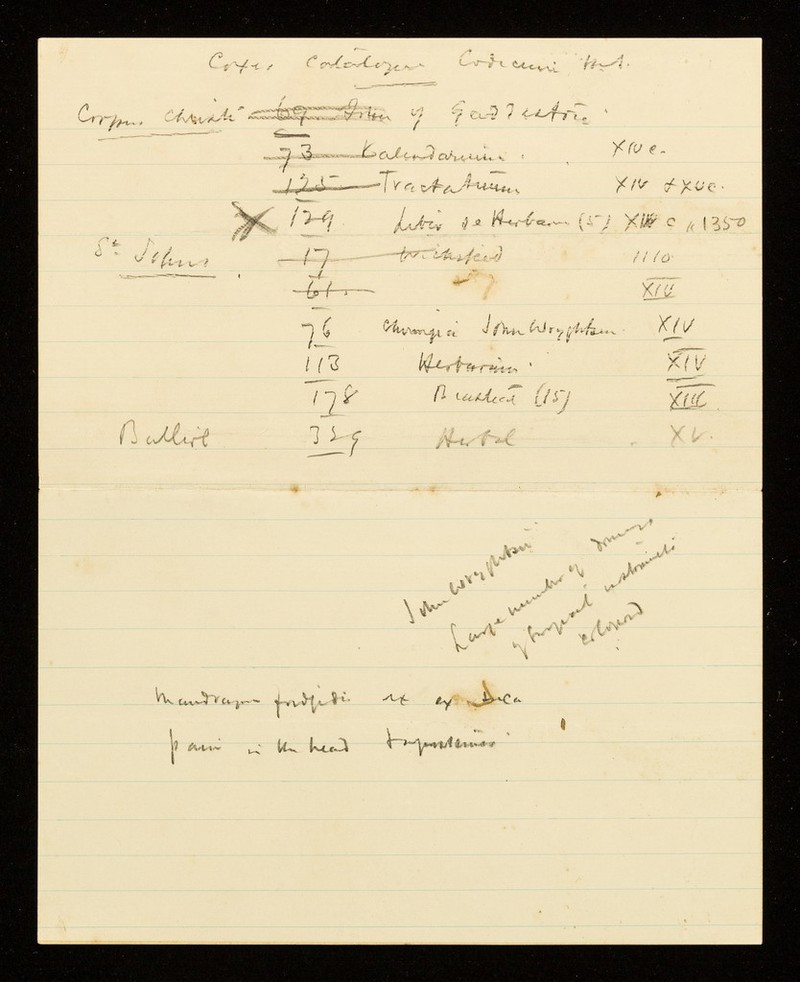 Coxes Catalogue Codicum Mss.
Corpus Christi 69 John of Gaddesden
73 Kalendarium. XIV c.
125 Tractatuum XIV & XV c.
X 129 de Herbarum (5) c 1350
St Johns 17 1110
61. XIV
76 Chirurgia John Wryghtson. XIV
113 Herbarium. XIV
178 (15) XIII
Balliol 329 Herbal XV.
John Wryghtson
Large number of
of Surgical instruments
coloured
Mandragora
pain in the head